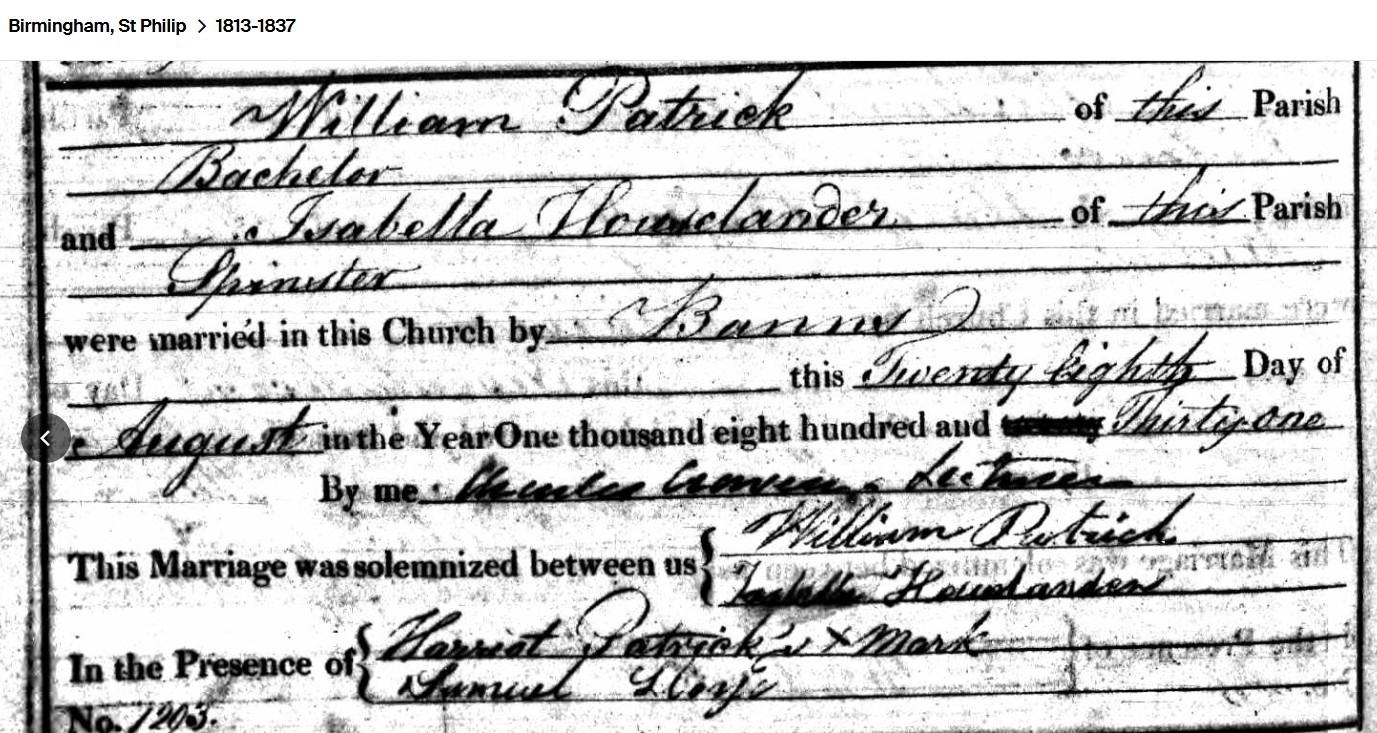 Birmingham, St Philip > 1813-1837
William Patrick of this Parish
Bachelor
and Isabella of this Parish
Spinster
were married in this Church by Banns
this Twenty Eighth Day of
August in the Year One thousand eight hundred and Thirty-one
By me Charles Lecturer
This Marriage was solemnized between us { William Patrick
Isabella
In the Presence of { Harriot Patrick's X Mark
Samuel
No. 1203.